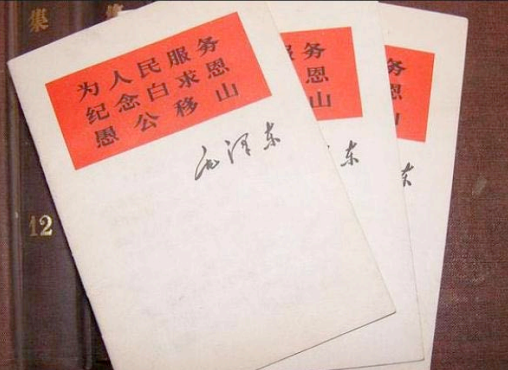 集
12
为人民服务
纪念白求恩
愚公移山
毛泽东
务
恩
山
东
务
恩
山
东